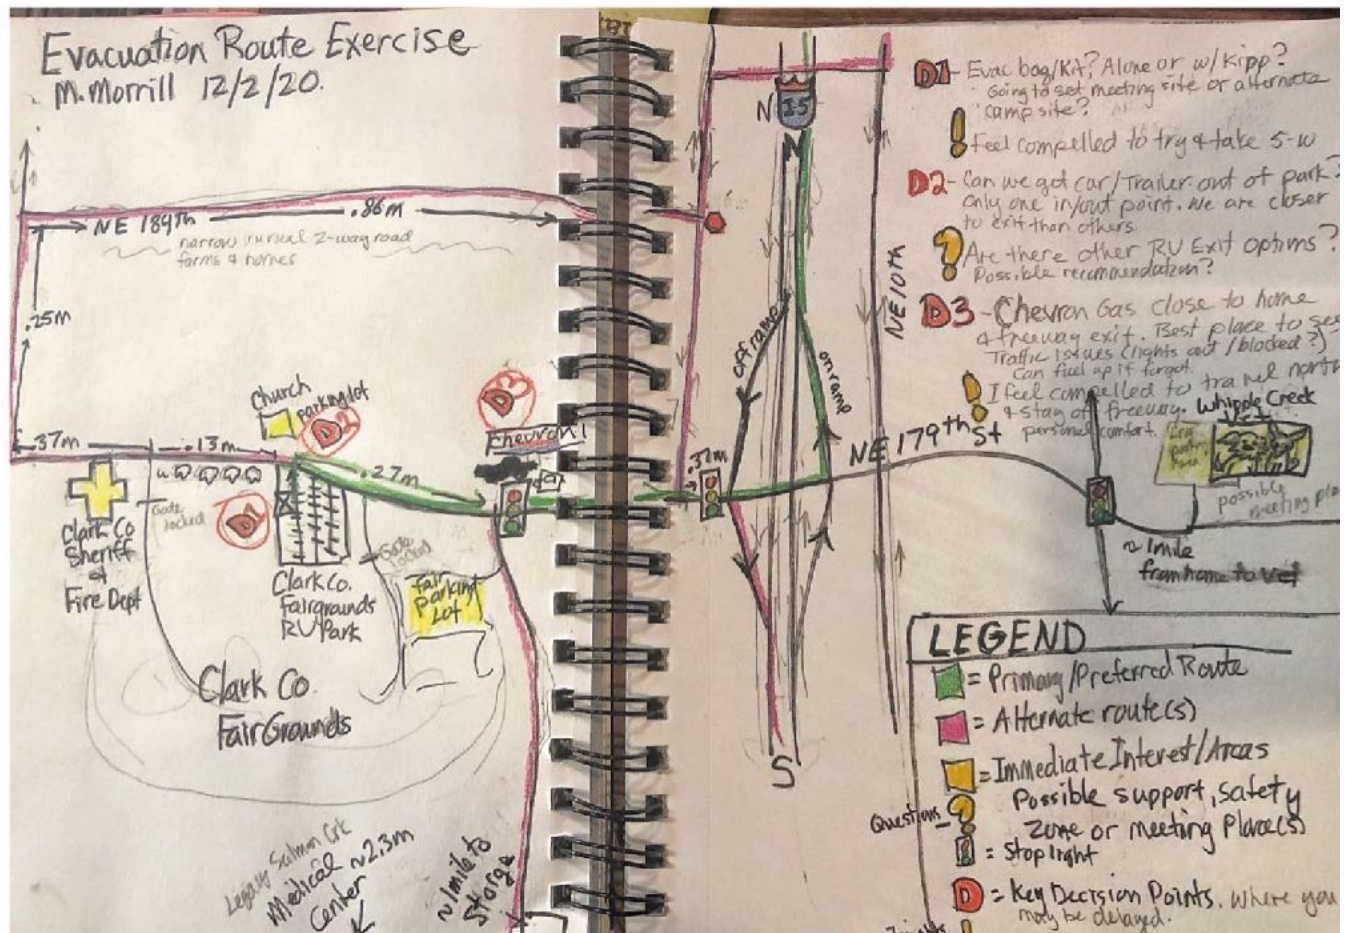 Evacuation Route Exercise
M. Morrill 12/2/20.
NE 189th
.86m
narrow rural 2-way road
farms & homes
.25m
Church
parking lot
D2
D3
Chevron
.37m
.13m
.27m
Gate
locked
D1
Clark Co
Sheriff
&
Fire Dept
Clark Co.
Fairgrounds
RV Park
Gate
locked
Fair
Parking
Lot
Clark Co.
FairGrounds
Legacy Salmon Crk
Medical ~2.3m
Center
~1mile to
Storge
N
I5
N
NE 10th
off ramp
on ramp
.37m
NE 179th St
S
D1 - Evac bag/Kit? Alone or w/Kipp?
Going to set meeting site or alternate
camp site?
! Feel compelled to try & take 5-w
D2 - Can we get car/Trailer out of park?
Only one in/out point. We are closer
to exit than others.
? Are there other RV Exit options?
Possible recommendation?
D3 - Chevron Gas close to home
& freeway exit. Best place to see
Traffic issues (lights out / blocked?)
Can fuel up if forgot.
! I feel compelled to travel north
& stay off freeway.
personal comfort.
Whipple Creek
possible
meeting pla
~1mile
from home to vet
LEGEND
= Primary/Preferred Route
= Alternate route(s)
= Immediate Interest/Areas
Possible support, safety
zone or meeting Place(s)
Questions - ?
= Stoplight
D = Key Decision Points. Where you
may be delayed.